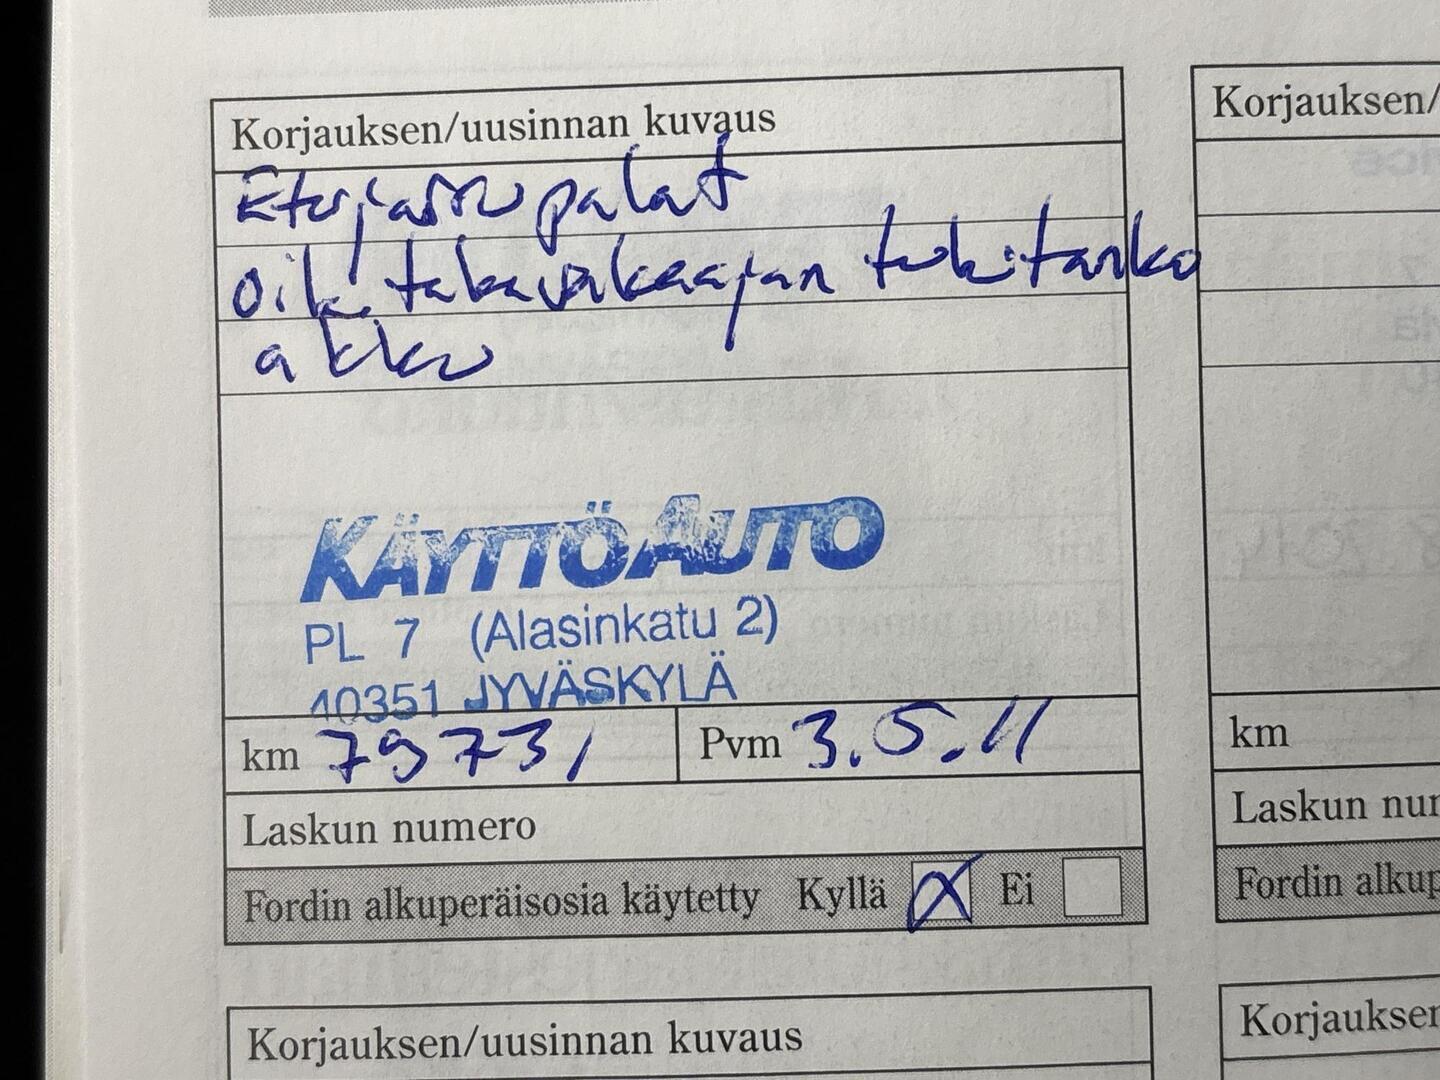 Korjauksen/uusinnan kuvaus
Korjauksen/
Etujarru palat
oik. takavakaajan tukitanko
akku
KÄYTTÖAUTO
PL 7 (Alasinkatu 2)
40351 JYVÄSKYLÄ
km 79731
Pvm 3.5.11
km
Laskun numero
Laskun nu
Fordin alkuperäisosia käytetty Kyllä X Ei
Fordin alkup
Korjauksen/uusinnan kuvaus
Korjauksen